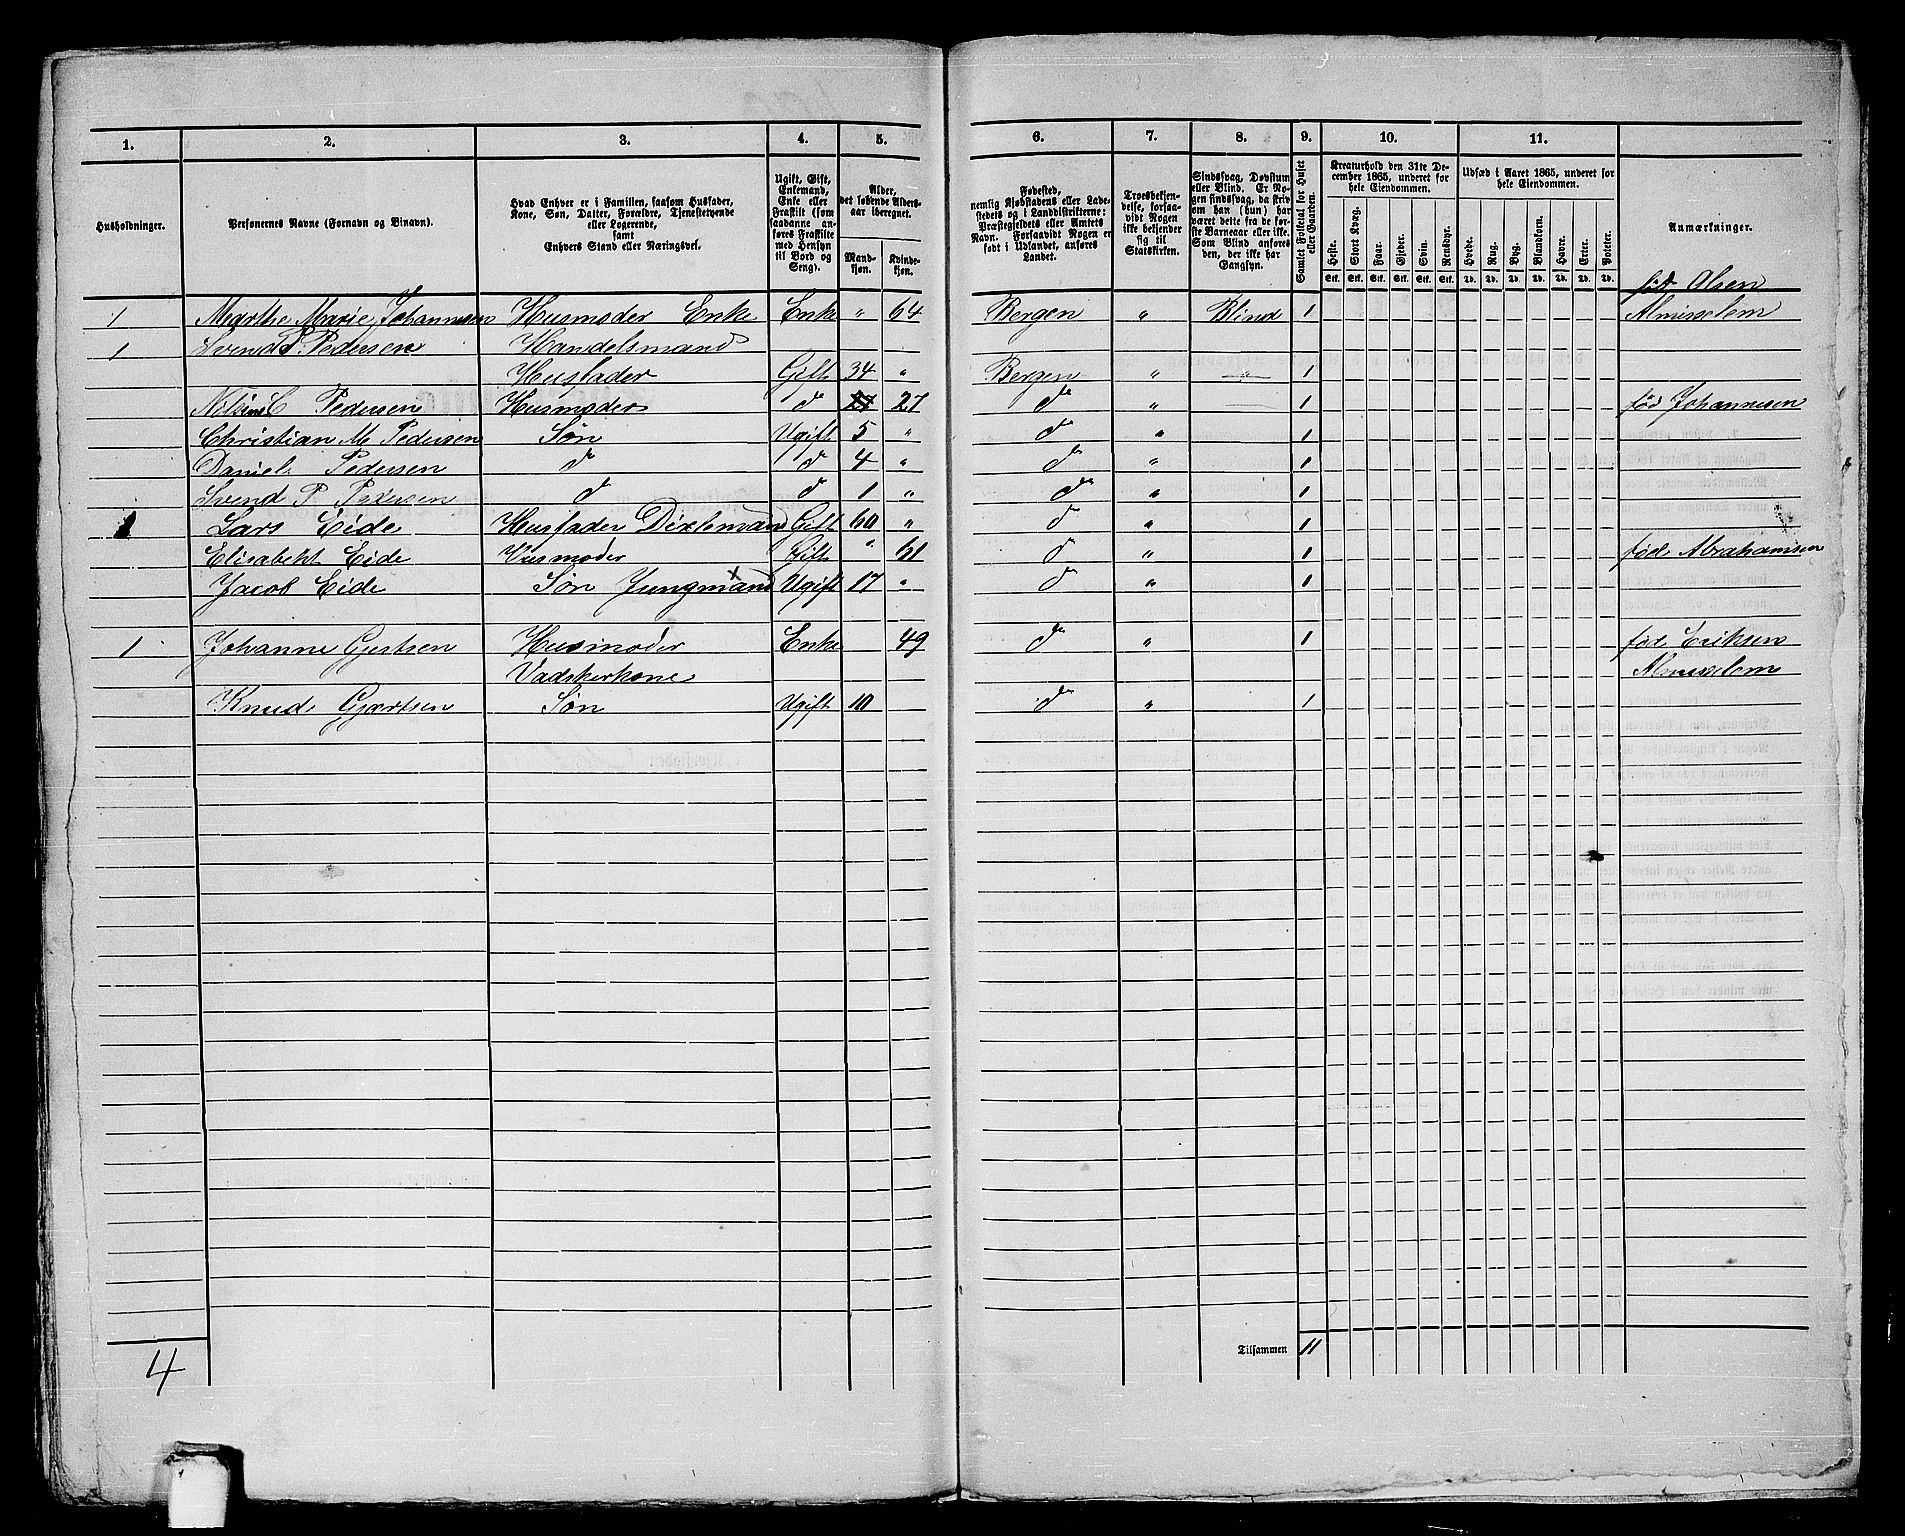 1. 2. 3. 4. 5. 6. 7. 8. 9. 10. 11.
Husholdninger.
Personernes Navne (Fornavn og Tilnavn).
Hvad Enhver er i Familien, saasom Husfader,
Kone, Søn, Datter, Forældre, Tjenestetyende
eller Logerende,
samt
Enhvers Stand eller Næringsvei.
Ugift, Gift,
Enkemand,
Enke eller
Fraskilt (som
saadanne an-
føres Fraskilte
med Hensyn
til Bord og
Seng).
Alder,
det løbende Alders-
aar iberegnet.
Mand-
kjøn.
Kvinde-
kjøn.
Fødested,
nemlig Kjøbstadens eller Lade-
stedets og i Landdistrikterne:
Præstegjeldets eller Amtets
Navn. Forsaavidt Nogen er
født i Udlandet, anføres
Landet.
Troesbekjen-
delse, forsaa-
vidt Nogen
ikke bekjender
sig til
Statskirken.
Sindssvag, Døvstum
eller Blind. Er No-
gen sindssvag, da skriv
om han (hun) har
været dette fra de før-
ste Barneaar eller ikke.
Som Blind anføres
den, der ikke har
Gangsyn.
Samlet Folketal for Huset
eller Gaarden.
Kreaturhold den 31te De-
cember 1865, underet for
hele Eiendommen.
Heste. Stort Kvæg. Faar. Gjeder. Svin. Rensdyr.
Stk. Stk. Stk. Stk. Stk. Stk.
Udsæd i Aaret 1865, underet for
hele Eiendommen.
Hvede. Rug. Byg. Blandkorn. Havre. Erter. Poteter.
Td. Td. Td. Td. Td. Td. Td.
Anmærkninger.
fød Olsen
1 Marthe Marie Johannesen Husmoder Enke Enke " 64 Bergen " Blind 1 Almisselem
1 Svend P. Pedersen Handelsmand
Husfader Gift 34 " Bergen " " 1
C Pedersen Husmoder d 27 d " 1 fød Johannesen
Christian M Pedersen Søn Ugift 5 " d " 1
Daniel Pedersen d d 4 " d " 1
Svend P Pedersen d d 1 " d " 1
1 Lars Eide Husfader Gift 60 " d " 1
Elisabeht Eide Husmoder Gift " 61 d " 1 fød Abrahamsen
Jacob Eide Søn Jungmand Ugift 17 " d " 1
1 Johanne Gjertsen Husmoder Enke 49 d " 1 fød Eriksen
Vadskerkone Almisselem
Knud Gjærtsen Søn Ugift 10 d " 1
4 Tilsammen 11